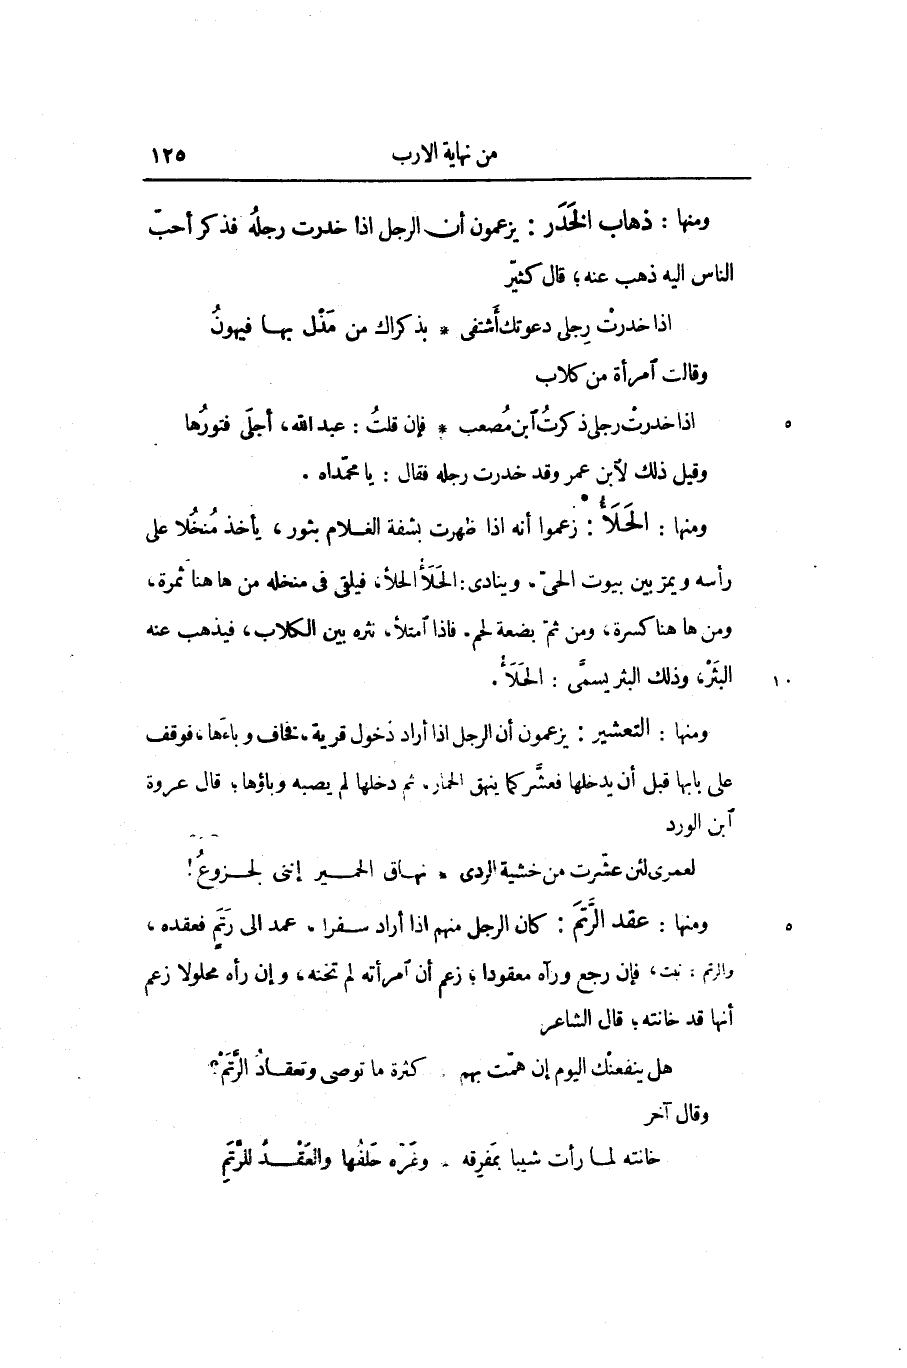 من نهاية الارب ١٢٥
ومنها : ذهاب الخَدَر : يزعمون أن الرجل اذا خدرت رجلُه فذكر أحبّ
الناس اليه ذهب عنه؛ قال كثيّر
اذا خدرتْ رِجلى دعوتك أَشتفى * بذكراك من مَذْل بها فيهونُ
وقالت ٱمرأة من كلاب
اذا خدرتْ رجلى ذكرتُ ٱبن مُصعب * فإن قلتُ : عبد الله، أجلَى فتورُها ٥
وقيل ذلك لٱبن عمر وقد خدرت رجله فقال : يا محمّداه .
ومنها : الحَلَأُ : زعموا أنه اذا ظهرت بشفة الغلام بثور ، يأخذ مُنخُلا على
رأسه ويمرّ بين بيوت الحىّ. وينادى: الحَلَأُ الحلأ، فيلقى فى منخله من ها هنا ثمرة،
ومن ها هنا كسرة، ومن ثمّ بضعة لحم. فاذا ٱمتلأ، نثره بين الكلاب، فيذهب عنه
البثَرْ، وذلك البثر يسمَّى : الحَلَأُ. ١٠
ومنها : التعشير : يزعمون أن الرجل اذا أراد دُخول قرية، فخاف وباءَها، فوقف
على بابها قبل أن يدخلها فعشَّر كما ينهق الحمار. ثم دخلها لم يصبه وباؤها؛ قال عروة
ٱبن الورد
لعمرى لئن عشّرت من خشية الردى * نهاق الحمير إننى لجزوعُ!
ومنها : عقد الرَّتَم : كان الرجل منهم اذا أراد سفرا . عمد الى رَتَمٍ فعقده ، ٥
والرتم : نبت، فإن رجع ورآه معقودا؛ زعم أن ٱمرأته لم تخنه، وإن رأه محلولا زعم
أنها قد خانته؛ قال الشاعر
هل ينفعنْك اليوم إن همّت بهم . كثرة ما توصى وتعقادُ الرَّتَمْ؟
وقال آخر
خانته لما رأت شيبا بمَفرِقه . وغَرّه حَلفُها والعَقْدُ للرَّتَمِ